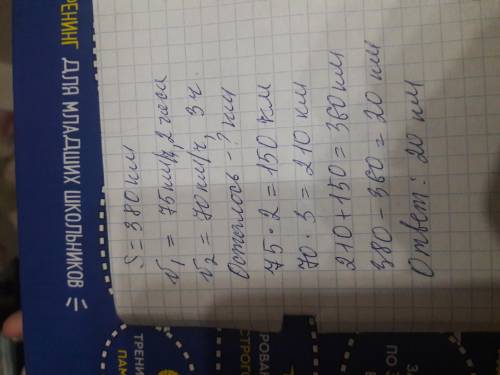 РЕНИНГ ДЛЯ МЛАДШИХ ШКОЛЬНИКОВ
S = 380 км
v₁ = 75 км/ч, 2 часа
v₂ = 70 км/ч, 3 ч.
Осталось - ? км
75 · 2 = 150 км
70 · 3 = 210 км
210 + 150 = 360 км
380 - 360 = 20 км
Ответ: 20 км
ТРЕНИ
ПАМ
РОВАН
СТРОГО
ПО